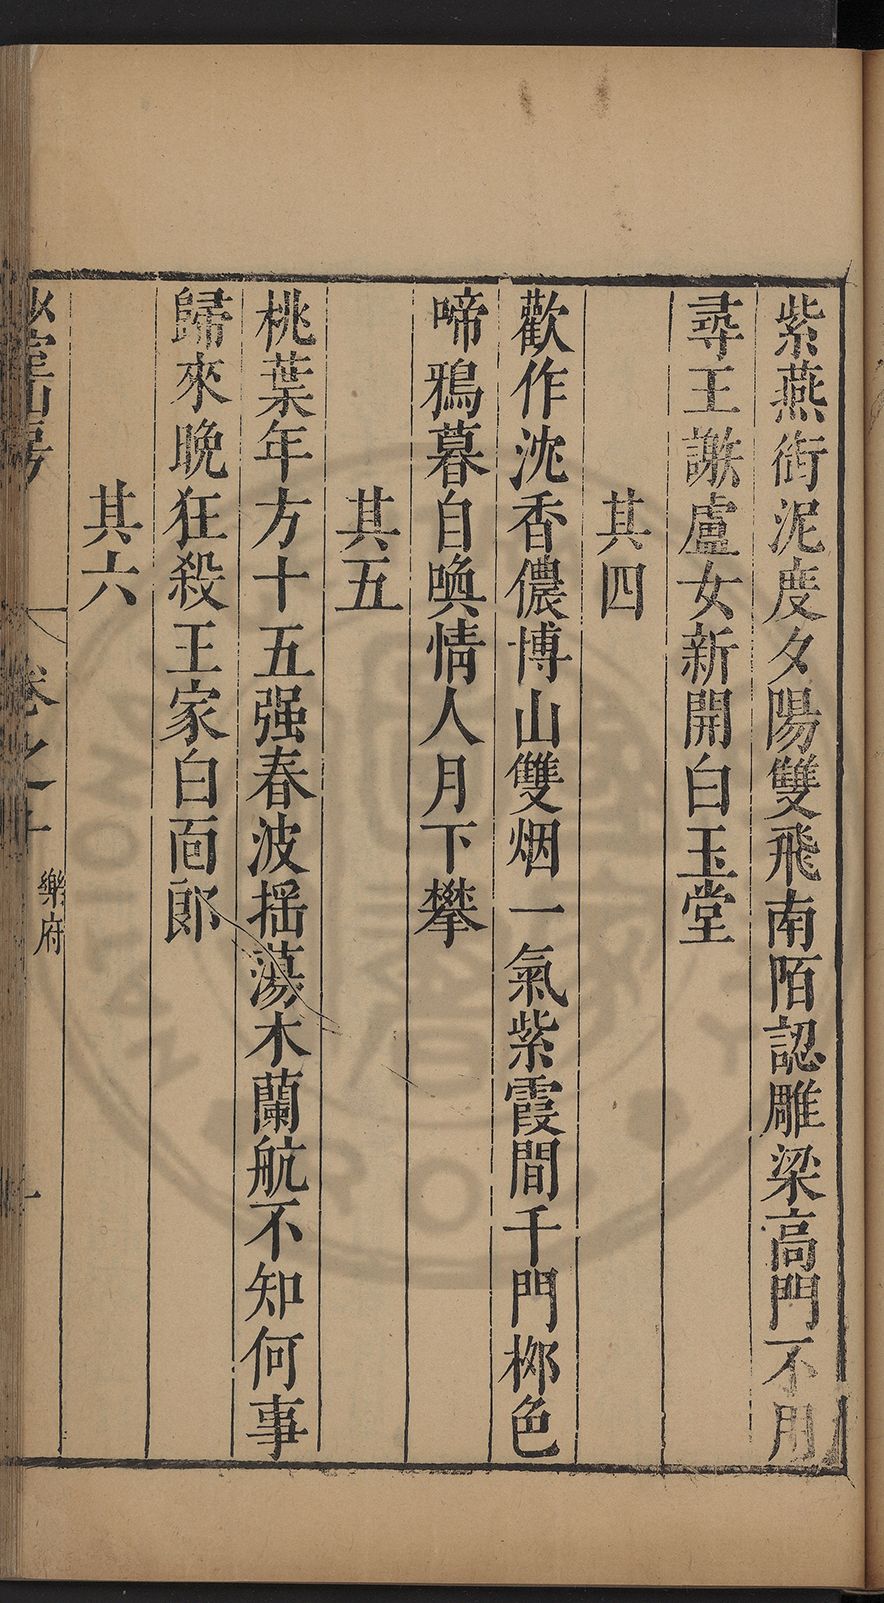 紫燕銜泥度夕陽雙飛南陌認雕梁高門不用
尋王謝盧女新開白玉堂
其四
歡作沈香儂博山雙烟一氣紫霞間千門桞色
啼鴉暮自喚情人月下攀
其五
桃葉年方十五强春波揺蕩木蘭航不知何事
歸來晚狂殺王家白面郎
其六
山房
卷之十
樂府